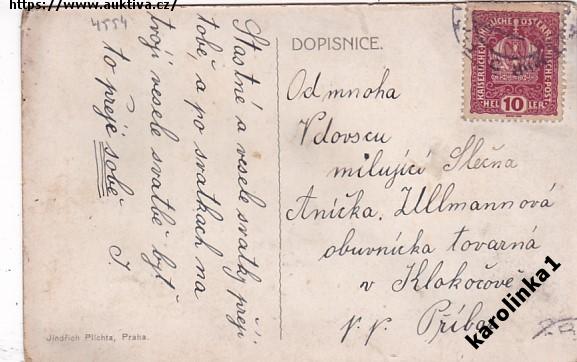 https://www.auktiva.cz/
4554
Stastné a vesele svatky přeji
tobě, a po svatkach na
troji vesele svatbě byt
to přeje sobě I
DOPISNICE.
KAISERLICHE KÖNIGLICHE ÖSTERREICHISCHE POST
HEL 10 LER
Od mnoha
Vdovscu
milující Slečna
Anička. Ullmannová
obuvnícka tovarná
v Klokočově
p. p. Příbor
Jindřich Plichta, Praha.
karolinka1